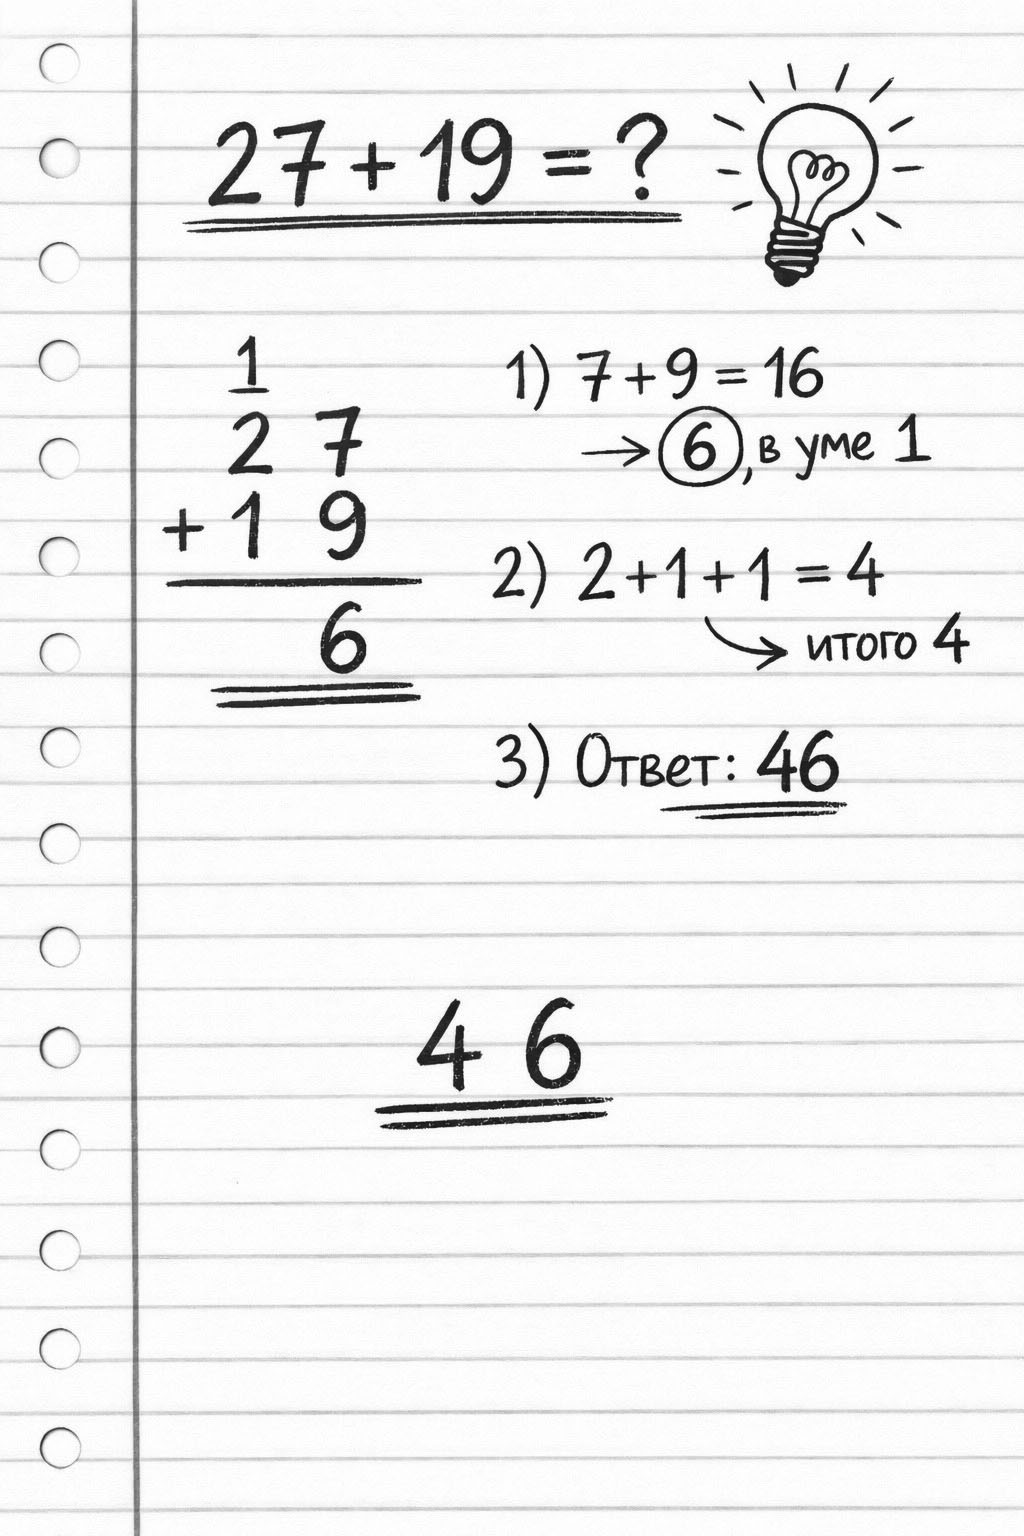 27 + 19 = ?
1
2 7
+ 1 9
6
1) 7 + 9 = 16
→ 6, в уме 1
2) 2 + 1 + 1 = 4
→ итого 4
3) Ответ: 46
4 6